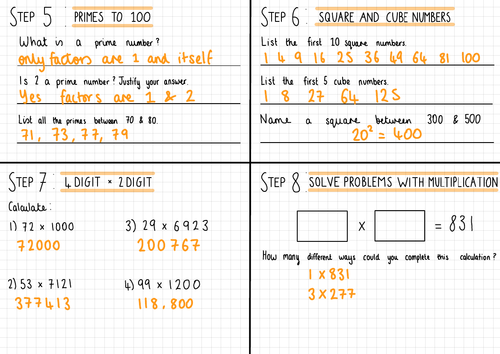 STEP 5 PRIMES TO 100
What is a prime number?
only factors are 1 and itself
Is 2 a prime number? Justify your answer.
Yes factors are 1 & 2
List all the primes between 70 & 80.
71, 73, 77, 79
STEP 6 SQUARE AND CUBE NUMBERS
List the first 10 square numbers.
1 4 9 16 25 36 49 64 81 100
List the first 5 cube numbers.
1 8 27 64 125
Name a square between 300 & 500
20² = 400
STEP 7 4 DIGIT × 2 DIGIT
Calculate:
1) 72 × 1000
72000
3) 29 × 6923
200767
2) 53 × 7121
377413
4) 99 × 1200
118,800
STEP 8 SOLVE PROBLEMS WITH MULTIPLICATION
× = 831
How many different ways could you complete this calculation?
1 × 831
3 × 277